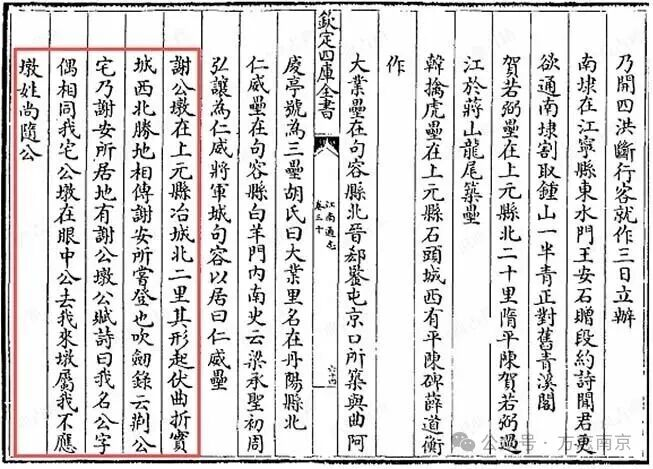 乃開四洪斷行客就作三日立辦
南埭在江寧縣東水門王安石贈段約詩聞君更
欲通南埭割取鍾山一半青正對舊青溪閣
賀若弼壘在上元縣北二十里隋平陳賀若弼過
江於蔣山龍尾築壘
韓擒虎壘在上元縣石頭城西有平陳碑薛道衡
作
大業壘在句容縣北晉郗鑒屯京口所築與曲阿
欽定四庫全書
江南通志
卷三十
庱亭號為三壘胡氏曰大業里名在丹陽縣北
仁威壘在句容縣白羊門內南史云梁承聖初周
弘讓為仁威將軍城句容以居曰仁威壘
謝公墩在上元縣冶城北二里其形起伏曲折實
城西北勝地相傳謝安所嘗登也吹劍錄云荊公
宅乃謝安所居地有謝公墩公賦詩曰我名公字
偶相同我宅公墩在眼中公去我來墩屬我不應
墩姓尚隨公
公众号
南京